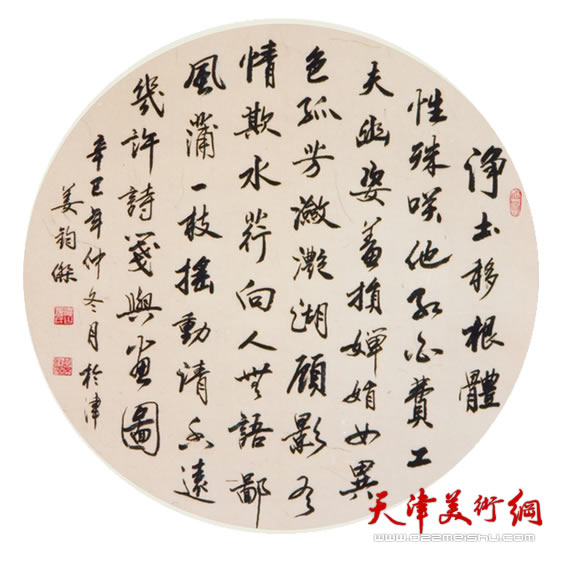 淨土移根體
性殊咲他紅白費工
夫幽姿羞損嬋娟女異
色孤芳瀲灩湖顧影有
情欺水荇向人無語鄙
風蒲一枝搖動遠
幾許詩箋與畫圖
辛巳年仲冬月於津
姜鈞傑
天津美術網
www.022meishu.com